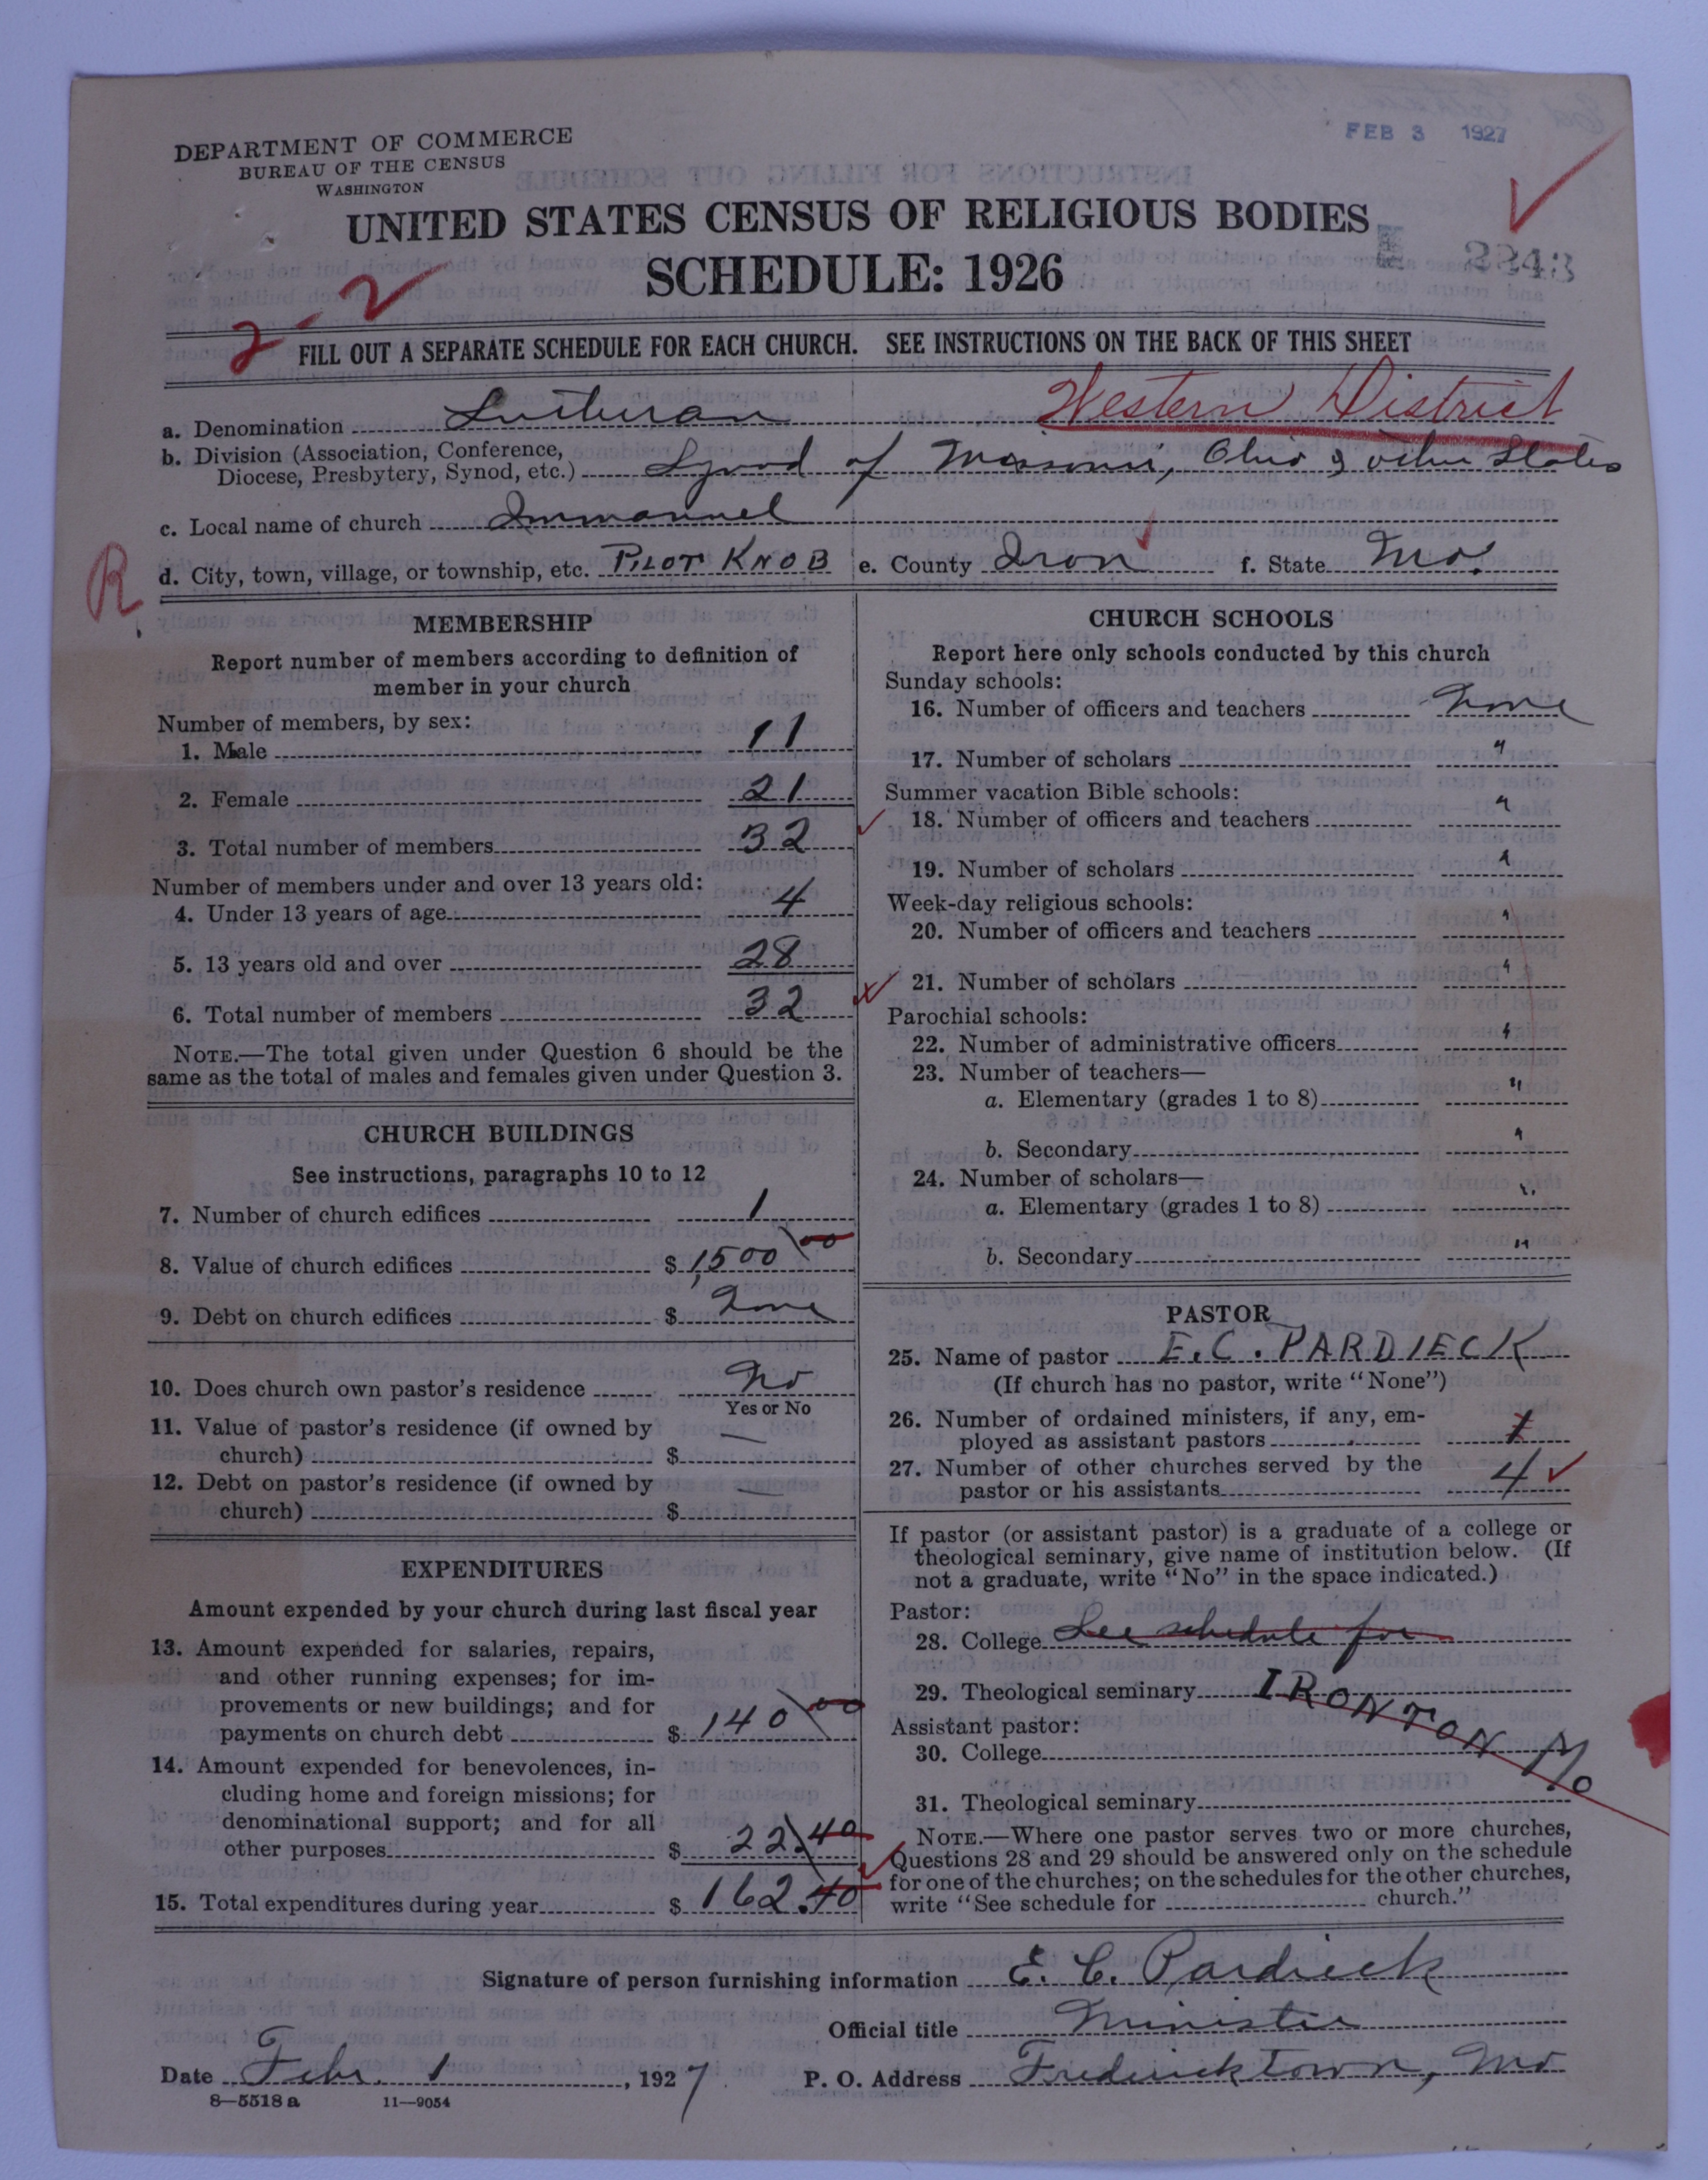 FEB 3 1927
DEPARTMENT OF COMMERCE
BUREAU OF THE CENSUS
WASHINGTON
UNITED STATES CENSUS OF RELIGIOUS BODIES
SCHEDULE: 1926
2-2
FILL OUT A SEPARATE SCHEDULE FOR EACH CHURCH. SEE INSTRUCTIONS ON THE BACK OF THIS SHEET
a. Denomination Lutheran Western District
b. Division (Association, Conference,
Diocese, Presbytery, Synod, etc.) Synod of Missouri, Ohio & other States
c. Local name of church Immanuel
R
d. City, town, village, or township, etc. PILOT KNOB e. County Iron f. State Mo.
MEMBERSHIP
Report number of members according to definition of
member in your church
Number of members, by sex:
1. Male 11
2. Female 21
3. Total number of members 32
Number of members under and over 13 years old:
4. Under 13 years of age 4
5. 13 years old and over 28
6. Total number of members 32
NOTE.—The total given under Question 6 should be the
same as the total of males and females given under Question 3.
CHURCH BUILDINGS
See instructions, paragraphs 10 to 12
7. Number of church edifices 1
8. Value of church edifices $ 1,500 00
9. Debt on church edifices $ None
10. Does church own pastor's residence No
Yes or No
11. Value of pastor's residence (if owned by
church) $ —
12. Debt on pastor's residence (if owned by
church) $ —
EXPENDITURES
Amount expended by your church during last fiscal year
13. Amount expended for salaries, repairs,
and other running expenses; for im-
provements or new buildings; and for
payments on church debt $ 140 00
14. Amount expended for benevolences, in-
cluding home and foreign missions; for
denominational support; and for all
other purposes $ 22.40
15. Total expenditures during year $ 162.40
CHURCH SCHOOLS
Report here only schools conducted by this church
Sunday schools:
16. Number of officers and teachers None
17. Number of scholars "
Summer vacation Bible schools:
18. Number of officers and teachers "
19. Number of scholars "
Week-day religious schools:
20. Number of officers and teachers "
21. Number of scholars "
Parochial schools:
22. Number of administrative officers "
23. Number of teachers—
a. Elementary (grades 1 to 8) "
b. Secondary "
24. Number of scholars—
a. Elementary (grades 1 to 8) "
b. Secondary "
PASTOR
25. Name of pastor E. C. PARDIECK
(If church has no pastor, write "None")
26. Number of ordained ministers, if any, em-
ployed as assistant pastors 1
27. Number of other churches served by the
pastor or his assistants 4
If pastor (or assistant pastor) is a graduate of a college or
theological seminary, give name of institution below. (If
not a graduate, write "No" in the space indicated.)
Pastor:
28. College See schedule for
29. Theological seminary IRONTON Mo
Assistant pastor:
30. College
31. Theological seminary
NOTE.—Where one pastor serves two or more churches,
Questions 28 and 29 should be answered only on the schedule
for one of the churches; on the schedules for the other churches,
write "See schedule for church."
Signature of person furnishing information E. C. Pardieck
Official title Minister
Date Febr. 1, 1927 P. O. Address Fredericktown, Mo
8—5518 a 11—9054